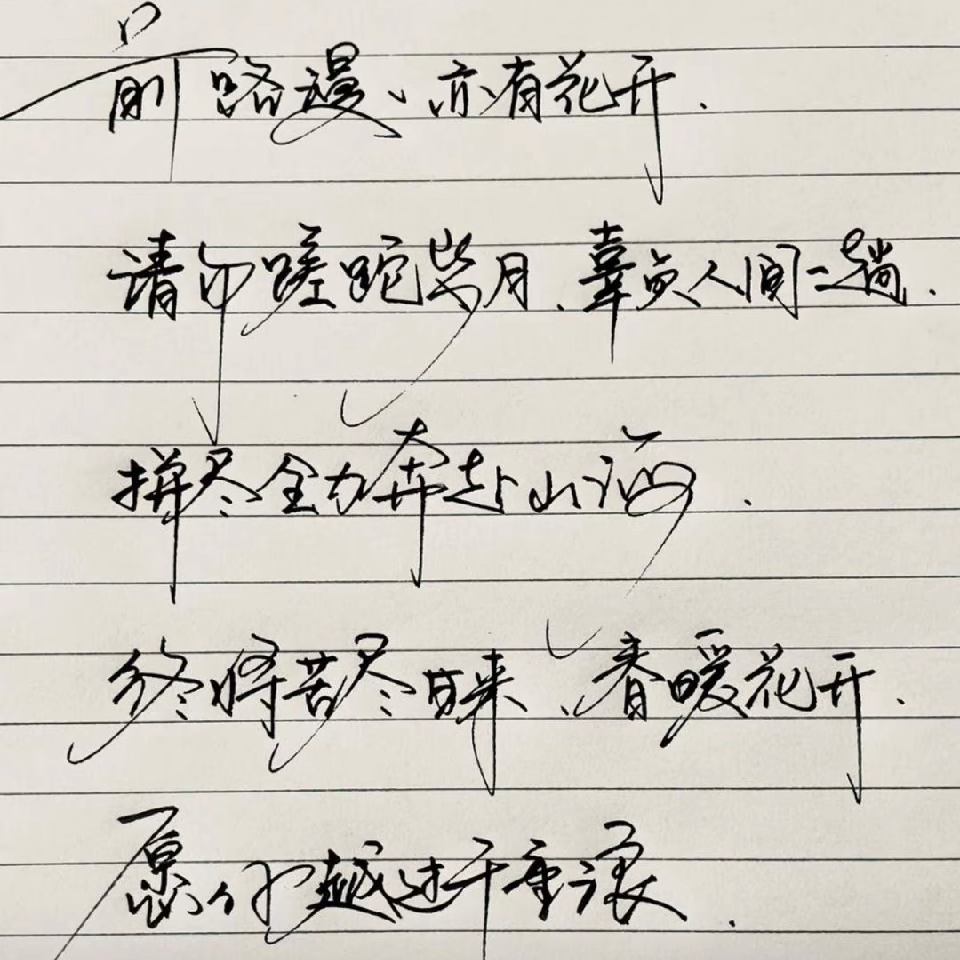 前路漫、亦有花开.
请勿蹉跎岁月、辜负人间一趟.
拼尽全力奔赴山海.
终将苦尽甘来、春暖花开.
愿你越过千重浪.